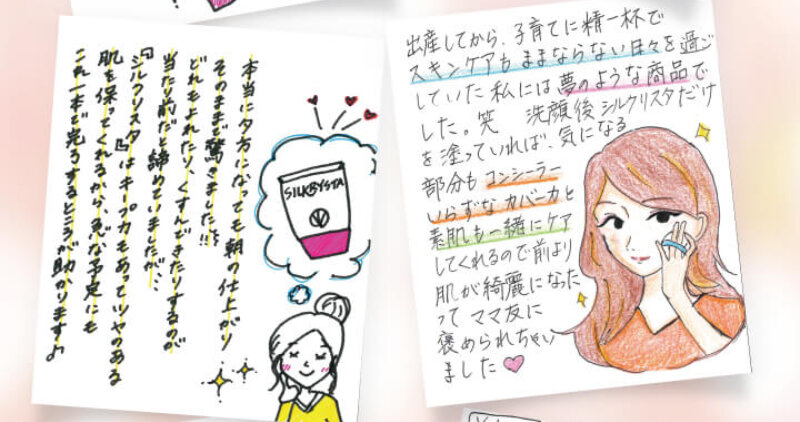 本当に夕方になっても朝の仕上がり
そのままで驚きました!!
どれもよれたりくすんできたりするのが
当たり前だと諦めていましたが…
『シルクリスタ』はキープ力もあってツヤのある
肌を保ってくれるから、急な予定にも
これ一本で完了するところが助かります♪
SILKRYSTA
出産してから、子育てに精一杯で
スキンケアもままならない日々を過ご
していた私には夢のような商品で
した。笑 洗顔後シルクリスタだけ
を塗っていれば、気になる
部分もコンシーラー
いらずなカバー力と
素肌も一緒にケア
してくれるので前より
肌が綺麗になった
ってママ友に
褒められちゃい
ました♥